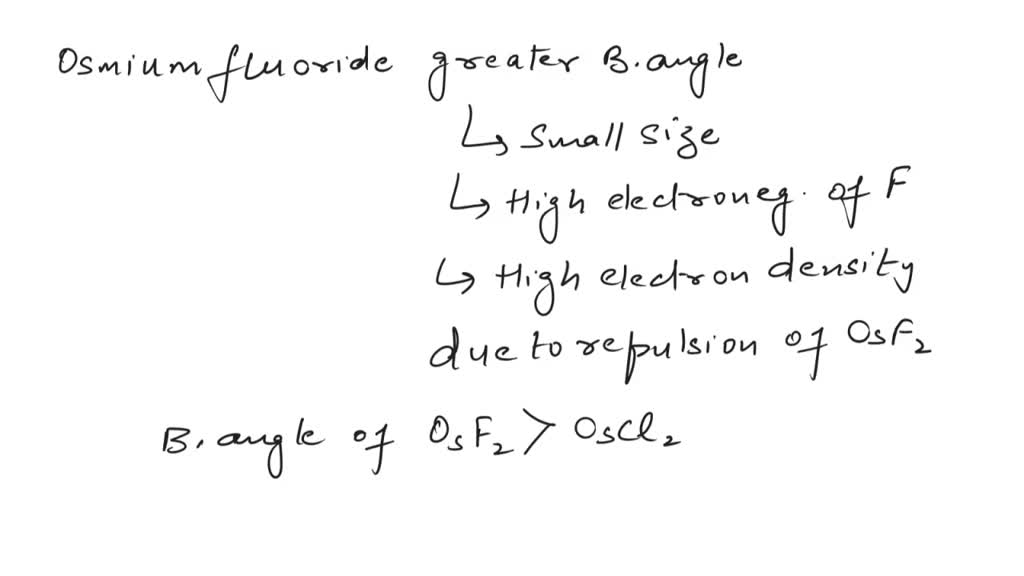 Osmium fluoride greater B. angle
↳ Small size
↳ High electroneg. of F
↳ High electron density
due to repulsion of OsF₂
B. angle of OsF₂ > OsCl₂